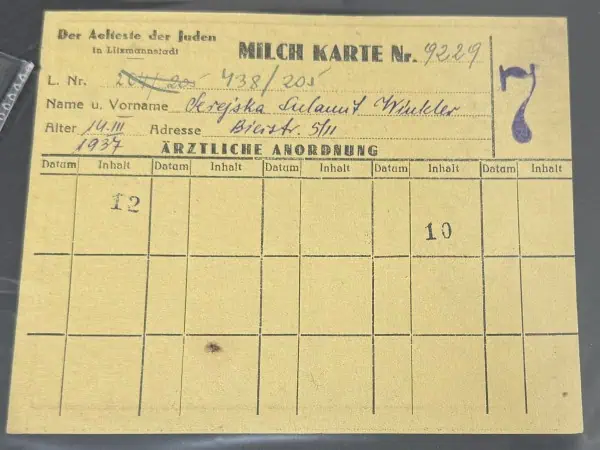 Der Aelteste der Juden
in Litzmannstadt
MILCH KARTE Nr. 9229
L. Nr. 204/205 438/205
7
Name u. Vorname Serejska Sulamit Winkler
Alter 14.III 1937 Adresse Bierstr. 5/11
ÄRZTLICHE ANORDNUNG
Datum Inhalt Datum Inhalt Datum Inhalt Datum Inhalt Datum Inhalt
12
10